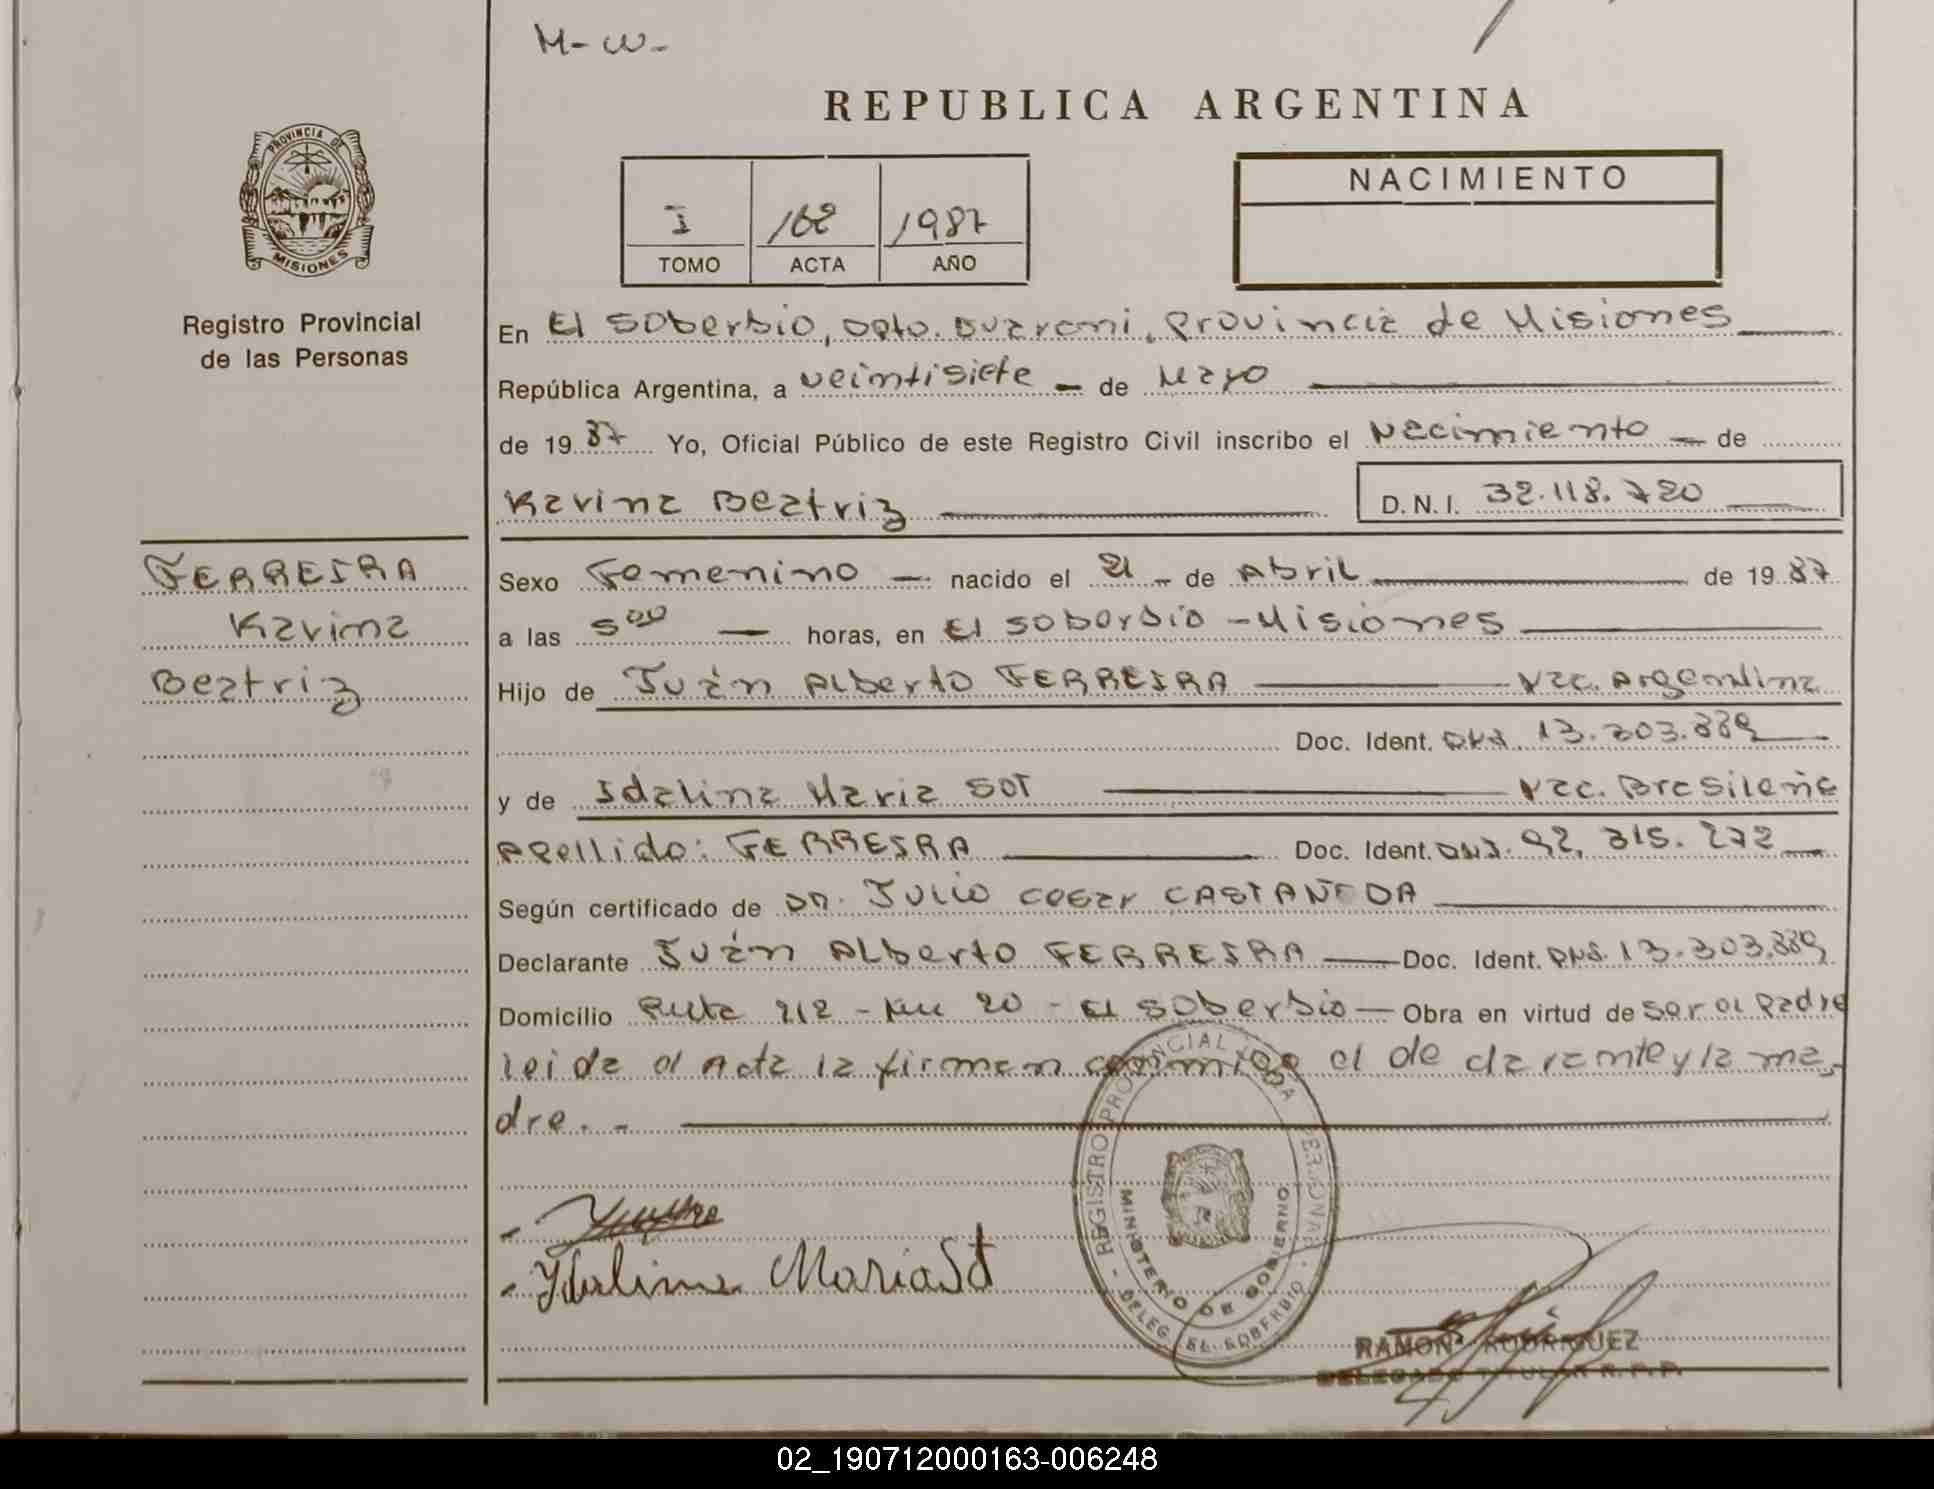 M-W-
REPUBLICA ARGENTINA
PROVINCIA DE
MISIONES
Registro Provincial
de las Personas
I 162 1987
TOMO ACTA AÑO
NACIMIENTO
En El Soberbio, Dpto. Guarani, Provincia de Misiones
República Argentina, a veintisiete - de Mayo
de 1987 Yo, Oficial Público de este Registro Civil inscribo el Nacimiento - de
Karina Beatriz D.N.I. 32.118.720
FERREIRA
Karina
Beatriz
Sexo Femenino - nacido el 21 - de Abril de 1987
a las 5 00 - horas, en El Soberbio - Misiones
Hijo de Juán Alberto FERREIRA Nac. Argentina
Doc. Ident. DNI. 13.303.889
y de Idalina Maria SOT Nac. Brasileña
Apellido: FERREIRA Doc. Ident. DNI. 92.315.272
Según certificado de DR. Julio Cesar CASTAÑEDA
Declarante Juán Alberto FERREIRA Doc. Ident. DNI. 13.303.889
Domicilio Ruta 212 - Km 20 - El Soberbio - Obra en virtud de ser el Padre
leida el Acta la firman conmigo el declarante y la ma-
dre. -
Idalina Maria Sot
REGISTRO PROVINCIAL
MINISTERIO DE GOBIERNO
DELEG. EL SOBERBIO
RAMON RODRIGUEZ
DELEGADO TITULAR R.P.P.
02_190712000163-006248